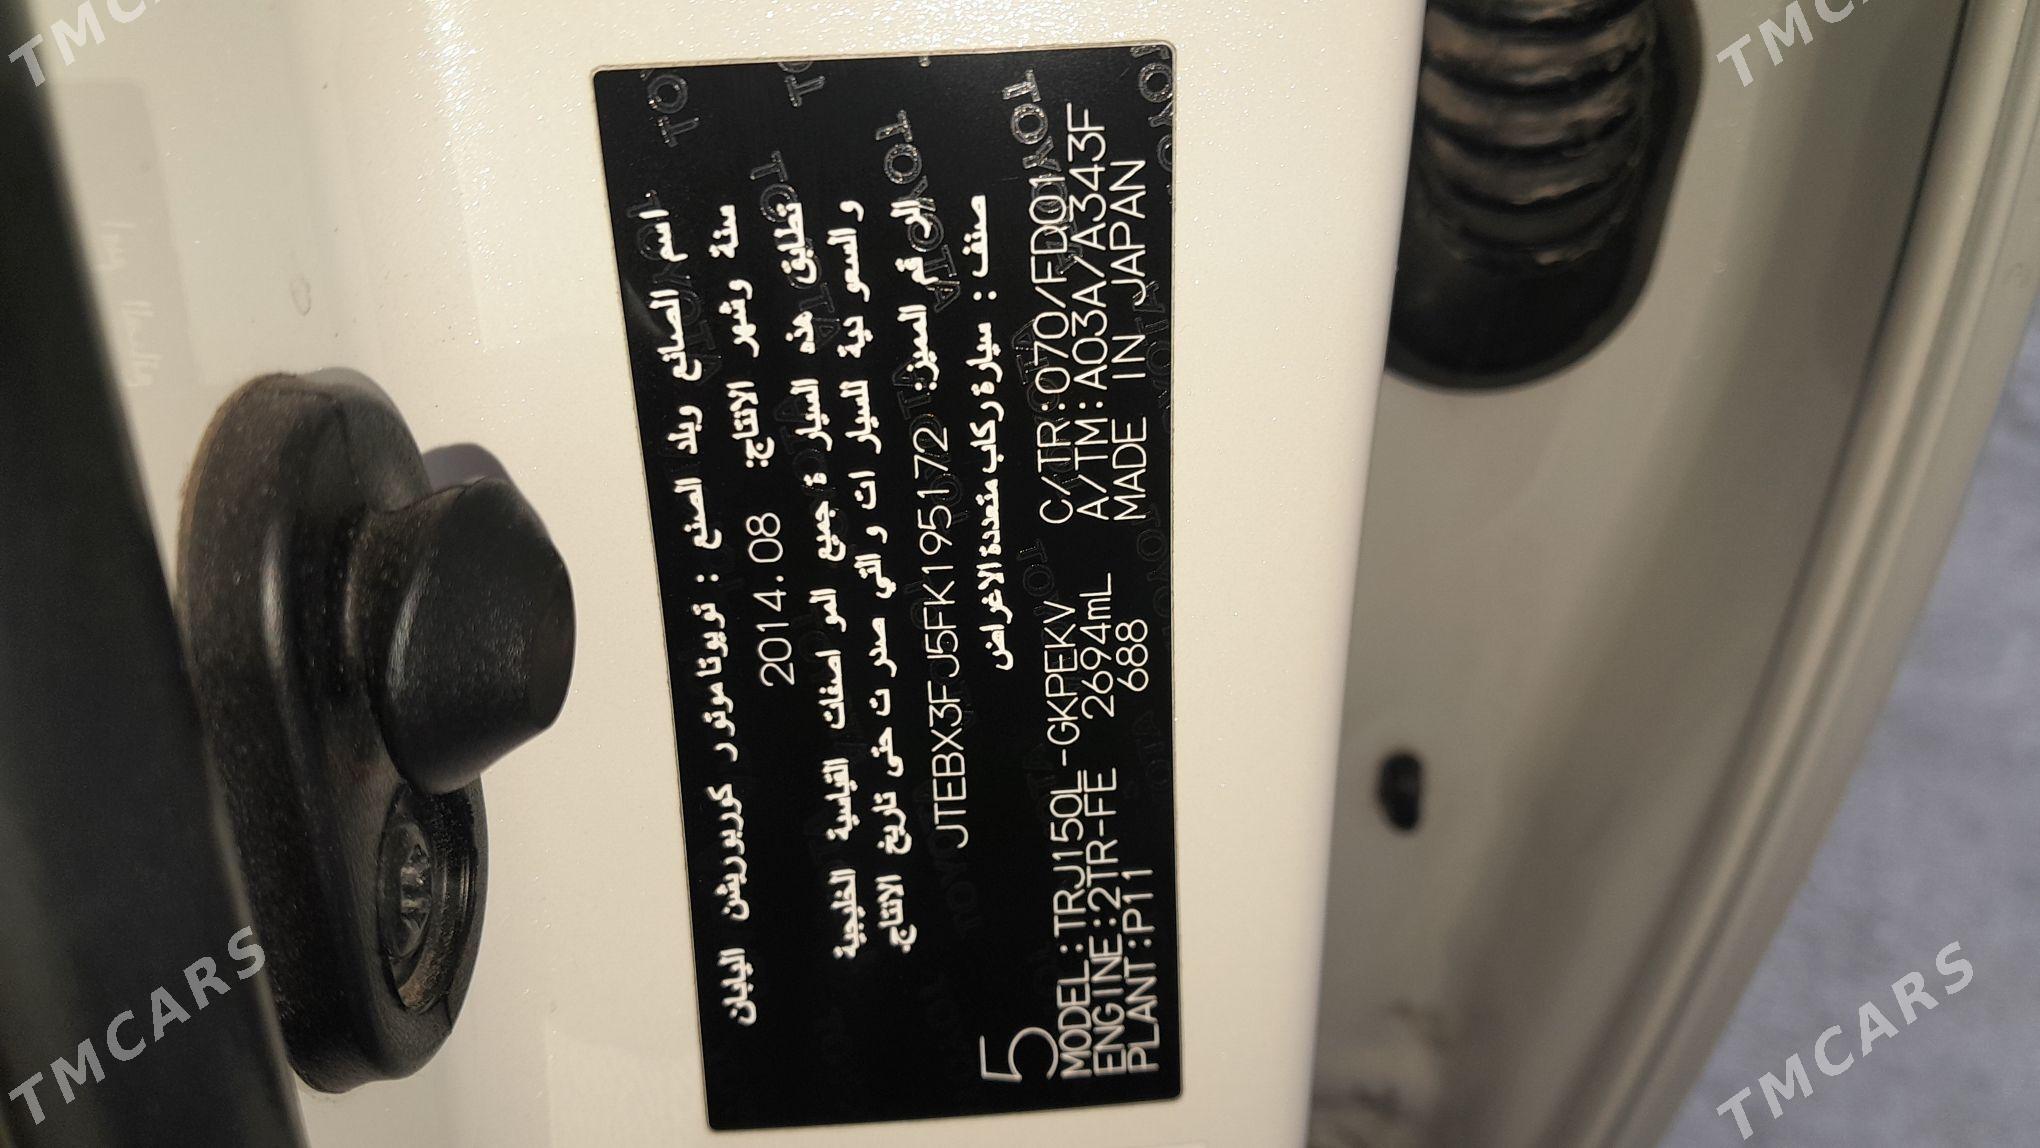 اسم الصانع وبلد الصنع : تويوتا موتور كوربوريشن اليابان
سنة وشهر الانتاج: 2014.08
تطابق هذه السيارة جميع المواصفات القياسية الخليجية
والسعودية للسيارات والتي صدرت حتى تاريخ الانتاج.
الرقم المميز: JTEBX3FJ5FK195172
صنف : سيارة ركاب متعددة الاغراض
5
MODEL:TRJ150L-GKPEKV C/TR:070/FD01
ENGINE:2TR-FE 2694mL A/TM:A03A/A343F
PLANT:P11 688 MADE IN JAPAN
TMCARS
TMCARS
TMCARS
TMCARS